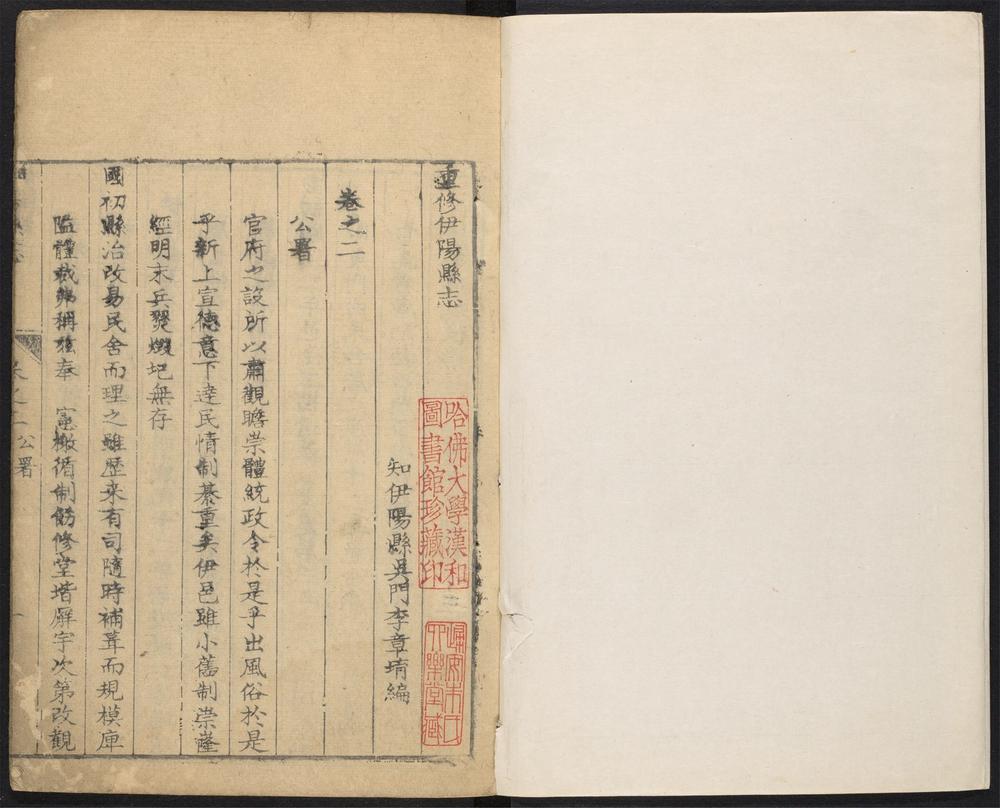 重修伊陽縣志
哈佛大學漢和
圖書館珍藏印
知伊陽縣吳門李章堉編
卷之二
公署
官府之設所以肅觀瞻崇體統政令於是乎出風俗於是
乎新上宣德意下達民情制綦重矣伊邑雖小舊制崇隆
經明末兵燹燬圯無存
國初縣治改易民舍而理之雖歷来有司隨時補葺而規模庳
隘體裁弗稱兹奉 憲檄循制飭修堂堦廨宇次第改觀
卷之二 公署 一